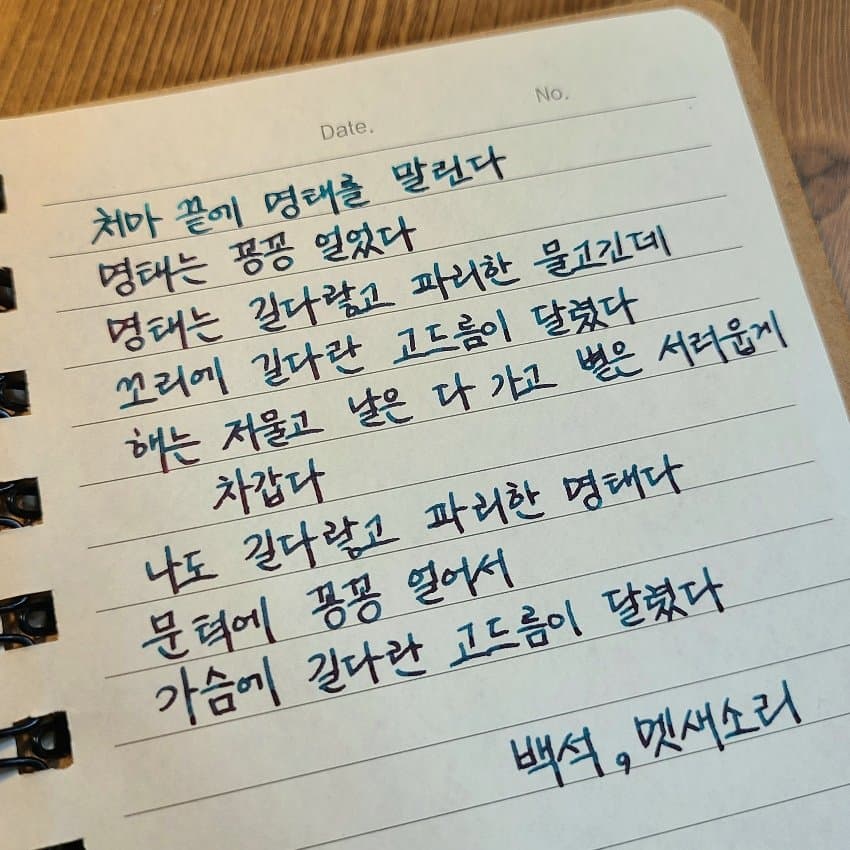 Date.
No.
처마 끝에 명태를 말린다
명태는 꽁꽁 얼었다
명태는 길다랗고 파리한 물고긴데
꼬리에 길다란 고드름이 달렸다
해는 저물고 날은 다 가고 볕은 서러웁게
차갑다
나도 길다랗고 파리한 명태다
문턱에 꽁꽁 얼어서
가슴에 길다란 고드름이 달렸다
백석, 멧새소리